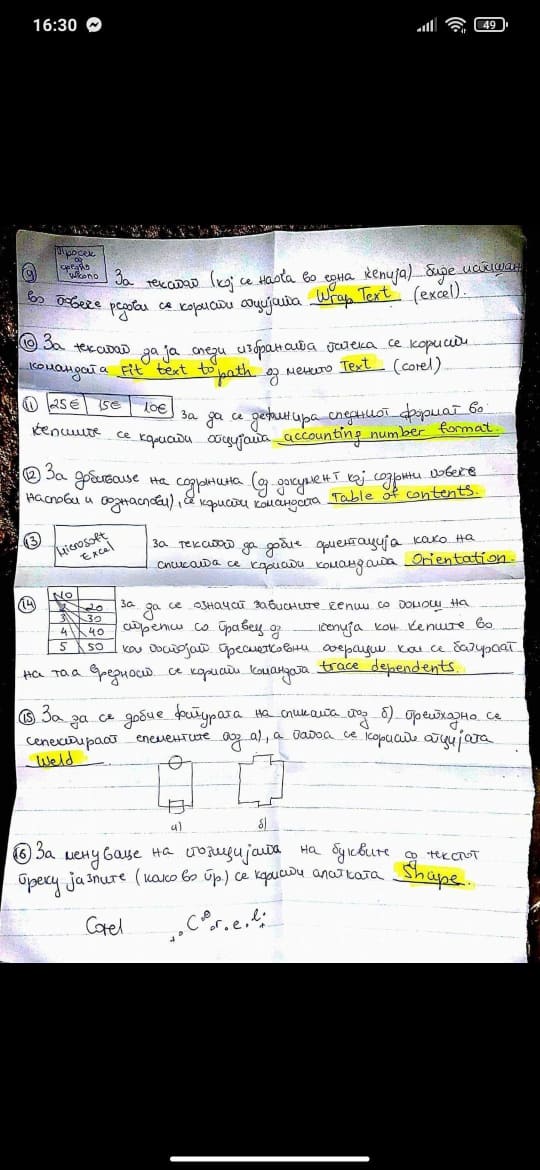 16:30
49
Просек од средно школо
9 За текстот (кој се наоѓа во една келија) биде испишан
во повеќе редови се користи опцијата Wrap Text (excel).
10 За текстот да ја следи избраната патека се користи
командата Fit text to path од менито Text (corel)
11 25€ 15€ 10€ За да се дефинира следниот формат во
келиите се користи опцијата accounting number format.
12 За добивање на содржина (од документ кој содржи повеќе
наслови и поднаслови), се користи командата Table of contents.
13 Microsoft Excel За текстот да добие ориентација како на
сликата се користи командата Orientation.
14 NO За да се означат зависните келии со помош на
2 20
3 30 стрелки со правец од келија кон келиите во
4 40 кои постојат пресметковни операции кои се базираат
5 50
на таа вредност се користи командата trace dependents.
15 За да се добие фигурата на сликата под б) претходно се
селектираат елементите под а), а потоа се користи опцијата
Weld
а) б)
16 За менување на позицијата на буквите од текстот
преку јазлите (како во пр.) се користи алатката Shape.
Corel C o r e l